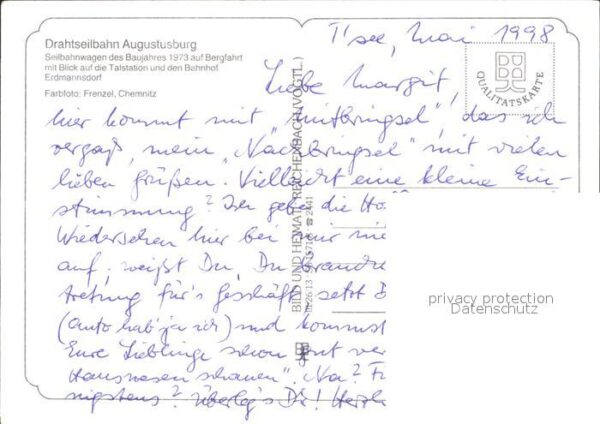 Drahtseilbahn Augustusburg
Seilbahnwagen des Baujahres 1973 auf Bergfahrt
mit Blick auf die Talstation und den Bahnhof
Erdmannsdorf
Farbfoto: Frenzel, Chemnitz
QUALITÄTSKARTE
BILD UND HEIMAT REICHENBACH (VOGTL.)
T'see, Mai 1998
Liebe Margit,
hier kommt mit "Mitbringsel", das ich
vergaß, mein "Nachbringsel" mit vielen
lieben Grüßen. Vielleicht eine kleine Ein-
stimmung? Ich gebe die Ho
Wiedersehen hier bei mir nie
auf, weißt Du, Du brauchst
tretung für's Geschäft, setzt D
(Auto hab' ja ich) und kommst
Eure Lieblinge schon gut ver
Hauswesen schauen". Na?
nigstens? Überleg's Dir! Herzl
privacy protection
Datenschutz